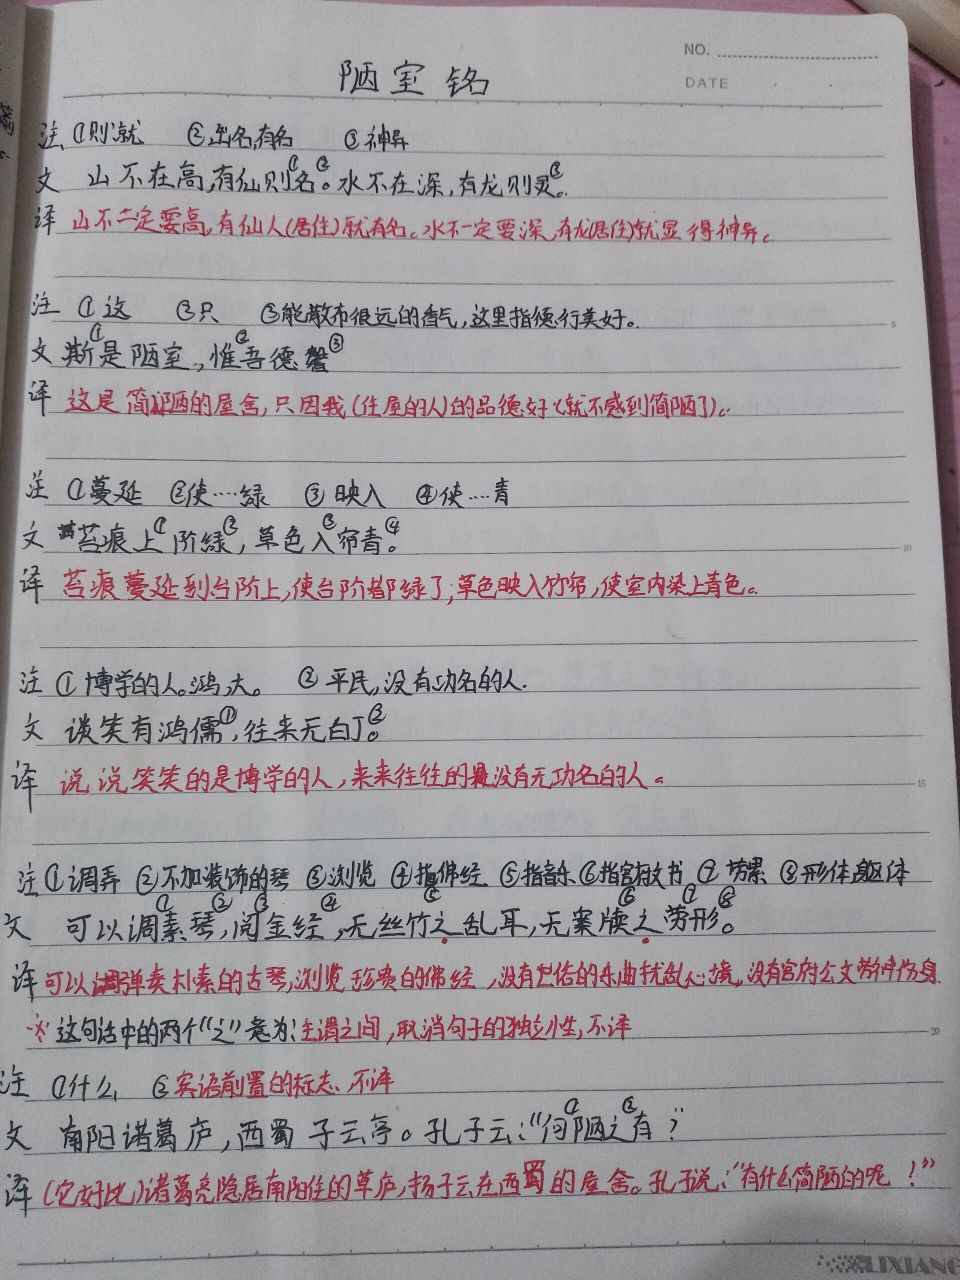 NO.
陋室铭
DATE
注 ①则:就 ②出名,有名 ③神异
文 山不在高,有仙则①名②。水不在深,有龙则灵③。
译 山不一定要高,有仙人(居住)就有名。水不一定要深,有龙(居住)就显得神异。
注 ①这 ②只 ③能散布很远的香气,这里指德行美好。
5
文 斯①是陋室,惟②吾德馨③
译 这是简陋的屋舍,只因我(住屋的人)的品德好(就不感到简陋了)。
注 ①蔓延 ②使……绿 ③映入 ④使……青
文 苔痕上①阶绿②,草色入③帘青④。
10
译 苔痕蔓延到台阶上,使台阶都绿了;草色映入竹帘,使室内染上青色。
注 ①博学的人。鸿,大。 ②平民,没有功名的人.
文 谈笑有鸿儒①,往来无白丁②。
译 说说笑笑的是博学的人,来来往往的是没有无功名的人。
15
注 ①调弄 ②不加装饰的琴 ③浏览 ④指佛经 ⑤指音乐 ⑥指官府文书 ⑦劳累 ⑧形体,躯体
文 可以调①素琴②,阅③金经④,无丝竹⑤之乱耳,无案牍⑥之劳⑦形⑧。
译 可以弹奏朴素的古琴,浏览珍贵的佛经,没有世俗的乐曲扰乱心境,没有官府公文劳神伤身.
※ 这句话中的两个“之”意为:主谓之间,取消句子的独立性,不译
20
注 ①什么 ②宾语前置的标志,不译
文 南阳诸葛庐,西蜀子云亭。孔子云:“何①陋之②有?
译 (它好比)诸葛亮隐居南阳住的草庐,扬子云在西蜀的屋舍。孔子说:“有什么简陋的呢!”
LIXIANG